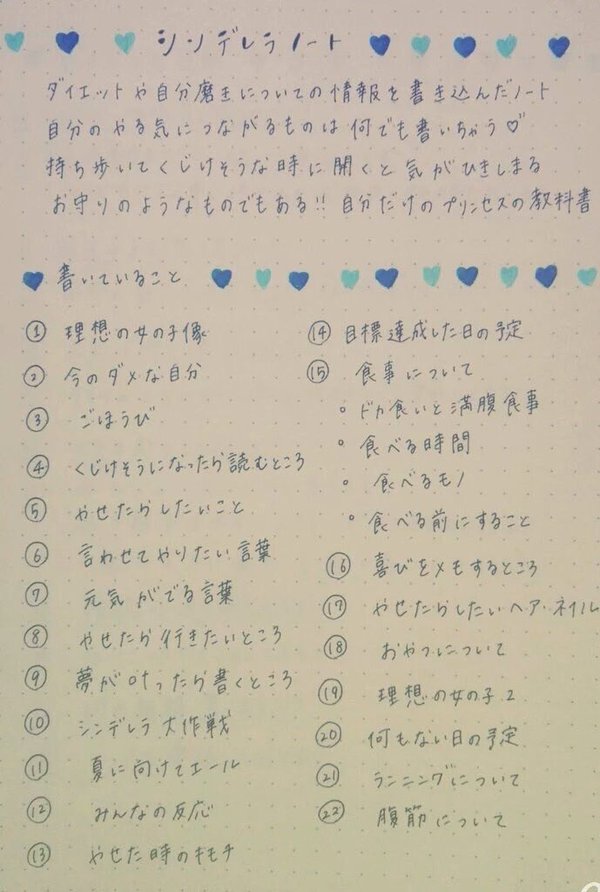 シンデレラノート
ダイエットや自分磨きについての情報を書き込んだノート
自分のやる気につながるものは何でも書いちゃう♡
持ち歩いてくじけそうな時に開くと気がひきしまる
お守りのようなものでもある!! 自分だけのプリンセスの教科書
書いていること
① 理想の女の子像
② 今のダメな自分
③ ごほうび
④ くじけそうになったら読むところ
⑤ やせたらしたいこと
⑥ 言わせてやりたい言葉
⑦ 元気がでる言葉
⑧ やせたら行きたいところ
⑨ 夢が叶ったら書くところ
⑩ シンデレラ大作戦
⑪ 夏に向けてエール
⑫ みんなの反応
⑬ やせた時のキモチ
⑭ 目標達成した日の予定
⑮ 食事について
○ ドカ食いと満腹食事
○ 食べる時間
○ 食べるモノ
○ 食べる前にすること
⑯ 喜びをメモするところ
⑰ やせたらしたいヘア・ネイル
⑱ おやつについて
⑲ 理想の女の子2
⑳ 何もない日の予定
㉑ ランニングについて
㉒ 腹筋について